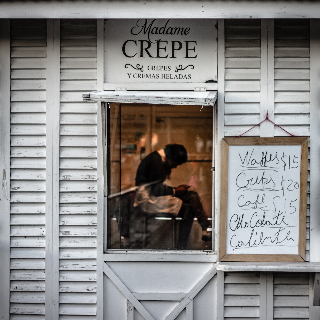 Madame
CRÊPE
CREPES
Y CREMAS HELADAS
Waffles $15
Crepas $20
Café $15
Chocolate